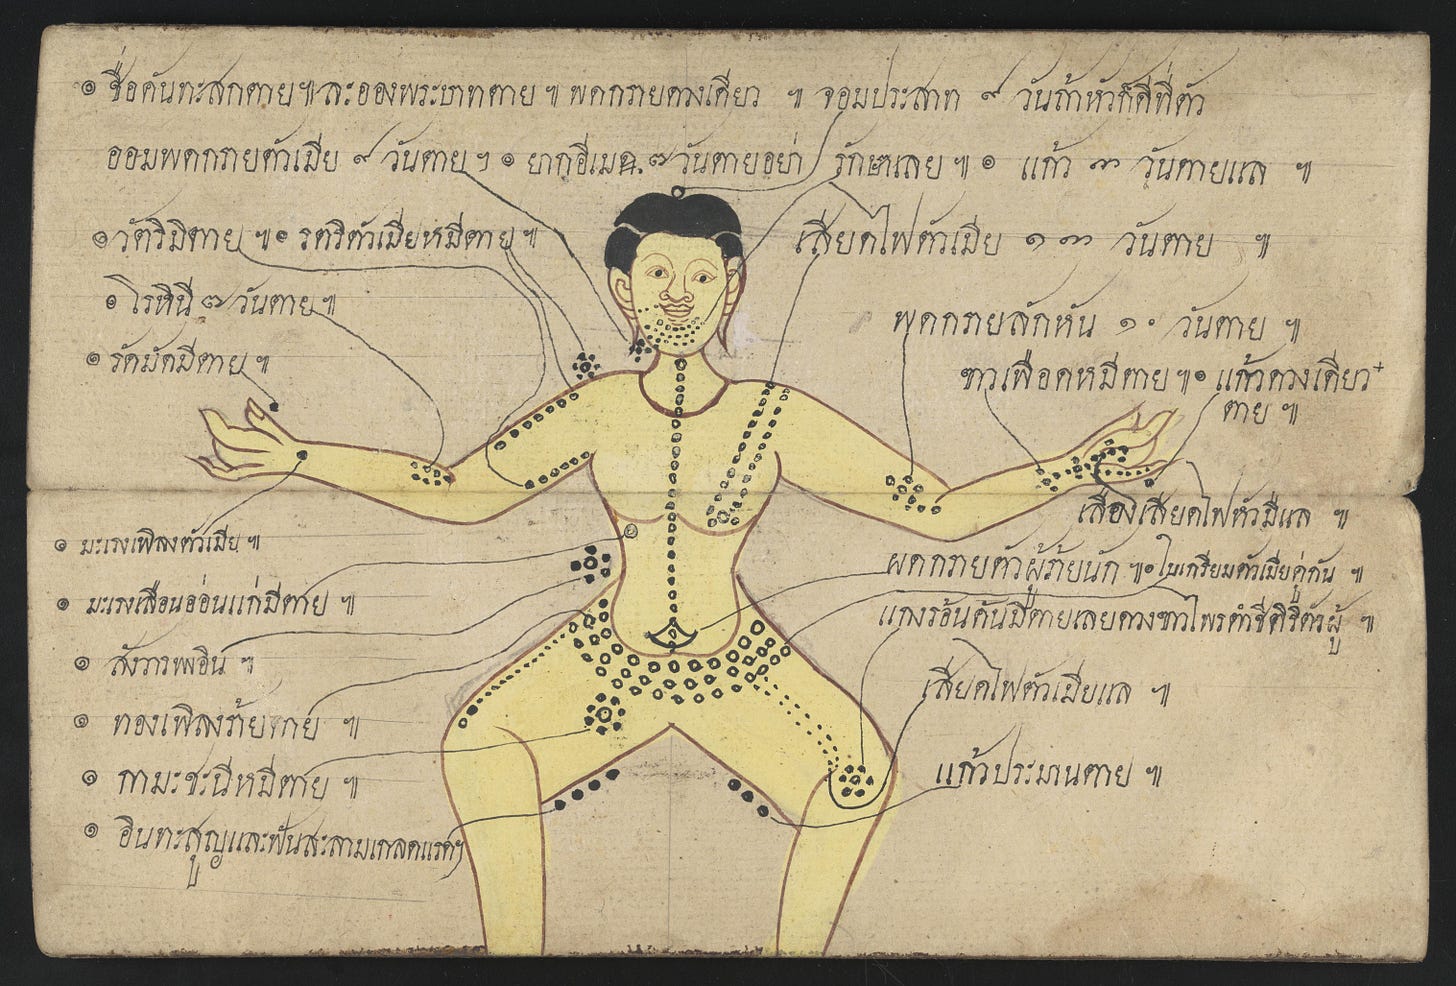 ๏ ชื่อคันทะสกตาย ๚ ละอองพระบาทตาย ๚ พดกรายดวงเดียว ๚ จอมประสาท ๙ วันถ้าหัวก็ดีที่ตัว
ออมพดกรายตัวเมีย ๙ วันตาย ๚ ๏ ยากอีเมด ๗ วันตายอย่า รักษาเลย ๚ ๏ แก้ว ๓ วันตายแล ๚
๏ วัตริมิตาย ๚ ๏ รตริตัวเมียหมีตาย ๚
เสียดไฟตัวเมีย ๑๓ วันตาย ๚
๏ โรหินี ๗ วันตาย ๚
พดกรายลักหัน ๑๐ วันตาย ๚
๏ รัดมัดมีตาย ๚
ขาวเฝือดหมีตาย ๚ ๏ แก้วดวงเดียว
ตาย ๚
เสืองเสียดไฟหัวมีแล ๚
๏ มะเรงเพิลงตัวเมีย ๚
ผดกรายตัวผู้ร้ายนัก ๚ ๏ ใบเกรียมตัวเมียคู่กัน ๚
๑ มะเรงเลือนอ่อนแก่มีตาย ๚
แกงร้อนดันมีตายเลยดวงขาวไพร ตัวผู้ ๚
๑ สังวารพอิน ๚
เสียดไฟตัวเมียแล ๚
๑ ทองเพิลงร้ายตาย ๚
แก้วประมานตาย ๚
๑ กามะชะนีหมีตาย ๚
๑ อินทะสูญและฟันสะลามเกลด